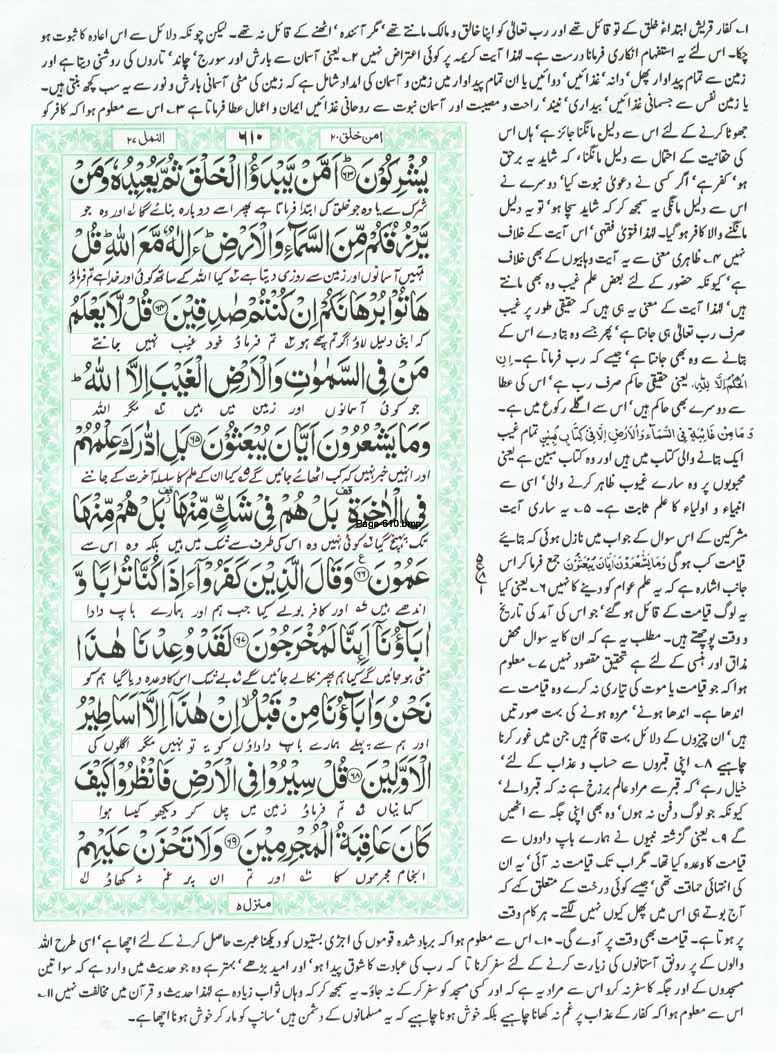 ۱۔ کفار قریش ابتداءً خلق کے تو قائل تھے اور رب تعالیٰ کو اپنا خالق و مالک مانتے تھے، مگر آئندہ اٹھنے کے قائل نہ تھے۔ لیکن چونکہ دلائل سے اس اعادہ کا ثبوت ہو
چکا۔ اس لئے یہ استفہام انکاری فرمانا درست ہے۔ لہٰذا آیت کریمہ پر کوئی اعتراض نہیں ۲۔ یعنی آسمان سے بارش اور سورج، چاند، تاروں کی روشنی دیتا ہے اور
زمین سے تمام پیداوار پھل، دانہ، غذائیں، دوائیں یا ان تمام پیداوار میں زمین و آسمان کی امداد شامل ہے کہ زمین کی مٹی آسمانی بارش و نور سے یہ سب کچھ بنتی ہیں۔
یا زمین نفس سے جسمانی غذائیں، بیداری، نیند، راحت و مصیبت اور آسمان نبوت سے روحانی غذائیں ایمان و اعمال عطا فرماتا ہے ۳۔ اس سے معلوم ہوا کہ کافر کو
جھوٹا کرنے کے لئے اس سے دلیل مانگنا جائز ہے، ہاں اس
کی حقانیت کے احتمال سے دلیل مانگنا، کہ شاید یہ برحق
ہو، کفر ہے، اگر کسی نے دعویٰ نبوت کیا، دوسرے نے
اس سے دلیل مانگی یہ سمجھ کر کہ شاید سچا ہو، تو یہ دلیل
مانگنے والا کافر ہو گیا۔ لہٰذا فتویٰ فقہی، اس آیت کے خلاف
نہیں ۴۔ ظاہری معنی سے یہ آیت وہابیوں کے بھی خلاف
ہے، کیونکہ حضور کے لئے بعض علم غیب وہ بھی مانتے
ہیں، لہٰذا آیت کے معنی یہ ہی ہیں کہ حقیقی طور پر غیب
صرف رب تعالیٰ ہی جانتا ہے، پھر جسے وہ بتا دے اس کے
بتانے سے وہ بھی جانتا ہے، جیسے کہ رب فرماتا ہے۔ اِنِ
الْحُكْمُ اِلَّا لِلّٰہِ، یعنی حقیقی حاکم صرف رب ہے، اس کی عطا
سے دوسرے بھی حاکم ہیں، اس سے اگلے رکوع میں ہے۔
وَمَا مِنْ غَآئِبَةٍ فِی السَّمَآءِ وَالْاَرْضِ اِلَّا فِیْ كِتَابٍ مُّبِیْنٍ تمام غیب
ایک بتانے والی کتاب میں ہیں اور وہ کتاب مبین ہے یعنی
محبوبوں پر وہ سارے غیوب ظاہر کرنے والی، اسی سے
انبیاء و اولیاء کا علم ثابت ہے۔ ۵۔ یہ ساری آیت
مشرکین کے اس سوال کے جواب میں نازل ہوئی کہ بتائیے
قیامت کب ہو گی وَمَا یَشْعُرُوْنَ اَیَّانَ یُبْعَثُوْنَ جمع فرما کر اس
جانب اشارہ ہے کہ یہ علم عوام کو دینے کا نہیں ۶۔ یعنی کیا
یہ لوگ قیامت کے قائل ہو گئے، جو اس کی آمد کی تاریخ
و وقت پوچھتے ہیں۔ مطلب یہ ہے کہ ان کا یہ سوال محض
مذاق اور ہنسی کے لئے ہے تحقیق مقصود نہیں ۷۔ معلوم
ہوا کہ جو قیامت یا موت کی تیاری نہ کرے وہ قیامت سے
اندھا ہے۔ اندھا ہونے، مردہ ہونے کی بہت صورتیں
ہیں، ان چیزوں کے دلائل بہت قائم ہیں جن میں غور کرنا
چاہیے ۸۔ اپنی قبروں سے حساب و عذاب کے لئے،
خیال رہے، کہ قبر سے مراد عالم برزخ ہے نہ کہ قبر والے،
کیونکہ جو لوگ دفن نہ ہوں، وہ بھی اپنی جگہ سے اٹھیں
گے ۹۔ یعنی گزشتہ نبیوں نے ہمارے باپ دادوں سے
قیامت کا وعدہ کیا تھا۔ مگر اب تک قیامت نہ آئی، یہ ان
کی انتہائی حماقت تھی، جیسے کوئی درخت کے متعلق کہے کہ
آج بوتے ہی اس میں پھل کیوں نہیں لگتے۔ ہر کام وقت
پر ہوتا ہے۔ قیامت بھی وقت پر آوے گی۔ ۱۰۔ اس سے معلوم ہوا کہ برباد شدہ قوموں کی اجڑی بستیوں کو دیکھنا عبرت حاصل کرنے کے لئے اچھا ہے، اسی طرح اللہ
والوں کے پر رونق آستانوں کی زیارت کرنے کے لئے سفر کرنا تا کہ رب کی عبادت کا شوق پیدا ہو، اور امید بڑھے، بہتر ہے وہ جو حدیث میں وارد ہے کہ سوا تین
مسجدوں کے اور جگہ کا سفر نہ کرو اس سے مراد یہ ہے کہ اور کسی مسجد کو سفر کر کے نہ جاؤ۔ یہ سمجھ کر کہ وہاں ثواب زیادہ ہے لہٰذا حدیث و قرآن میں مخالفت نہیں ۱۱۔
اس سے معلوم ہوا کہ کفار کے عذاب پر غم نہ کھانا چاہیے بلکہ خوش ہونا چاہیے کہ یہ مسلمانوں کے دشمن ہیں، سانپ کو مار کر خوش ہونا اچھا ہے۔
امن خلق ۲۰
۶۱۰
النمل ۲۷
یُشْرِكُوْنَ ﴿۶۳﴾ اَمَّنْ یَّبْدَؤُا الْخَلْقَ ثُمَّ یُعِیْدُهٗ وَمَنْ
شرک سے یا وہ جو خلق کی ابتدا فرماتا ہے پھر اسے دوبارہ بنائے گا اور وہ جو
یَّرْزُقُكُمْ مِّنَ السَّمَآءِ وَالْاَرْضِ ؕ ءَاِلٰهٌ مَّعَ اللّٰهِ ؕ قُلْ
تمہیں آسمانوں اور زمین سے روزی دیتا ہے کیا اللہ کے ساتھ کوئی اور خدا ہے تم فرماؤ
هَاتُوْا بُرْهَانَكُمْ اِنْ كُنْتُمْ صٰدِقِیْنَ ﴿۶۴﴾ قُلْ لَّا یَعْلَمُ
کہ اپنی دلیل لاؤ اگر تم سچے ہو تم فرماؤ خود غیب نہیں جانتے
مَنْ فِی السَّمٰوٰتِ وَالْاَرْضِ الْغَیْبَ اِلَّا اللّٰهُ ؕ
جو کوئی آسمانوں اور زمین میں ہیں مگر اللہ
وَمَا یَشْعُرُوْنَ اَیَّانَ یُبْعَثُوْنَ ﴿۶۵﴾ بَلِ ادّٰرَكَ عِلْمُهُمْ
اور انہیں خبر نہیں کہ کب اٹھائے جائیں گے کیا ان کے علم کا سلسلہ آخرت کے جاننے
فِی الْاٰخِرَةِ بَلْ هُمْ فِیْ شَكٍّ مِّنْهَا بَلْ هُمْ مِّنْهَا
تک پہنچ گیا کوئی نہیں وہ اس کی طرف سے شک میں ہیں بلکہ وہ اس سے
عَمُوْنَ ﴿۶۶﴾ وَقَالَ الَّذِیْنَ كَفَرُوْۤا ءَاِذَا كُنَّا تُرٰبًا وَّ
اندھے ہیں اور کافر بولے کیا جب ہم اور ہمارے باپ دادا
اٰبَآؤُنَاۤ اَئِنَّا لَمُخْرَجُوْنَ ﴿۶۷﴾ لَقَدْ وُعِدْنَا هٰذَا
مٹی ہو جائیں گے کیا ہم پھر نکالے جائیں گے بے شک اس کا وعدہ دیا گیا ہم کو
نَحْنُ وَاٰبَآؤُنَا مِنْ قَبْلُ اِنْ هٰذَاۤ اِلَّاۤ اَسَاطِیْرُ
اور ہم سے پہلے ہمارے باپ داداؤں کو یہ تو نہیں مگر اگلوں کی
الْاَوَّلِیْنَ ﴿۶۸﴾ قُلْ سِیْرُوْا فِی الْاَرْضِ فَانْظُرُوْا كَیْفَ
کہانیاں تم فرماؤ زمین میں چل کر دیکھو کیسا ہوا
كَانَ عَاقِبَةُ الْمُجْرِمِیْنَ ﴿۶۹﴾ وَلَا تَحْزَنْ عَلَیْهِمْ
انجام مجرموں کا اور تم ان پر غم نہ کھاؤ
منزل ۵
Page-610.bmp